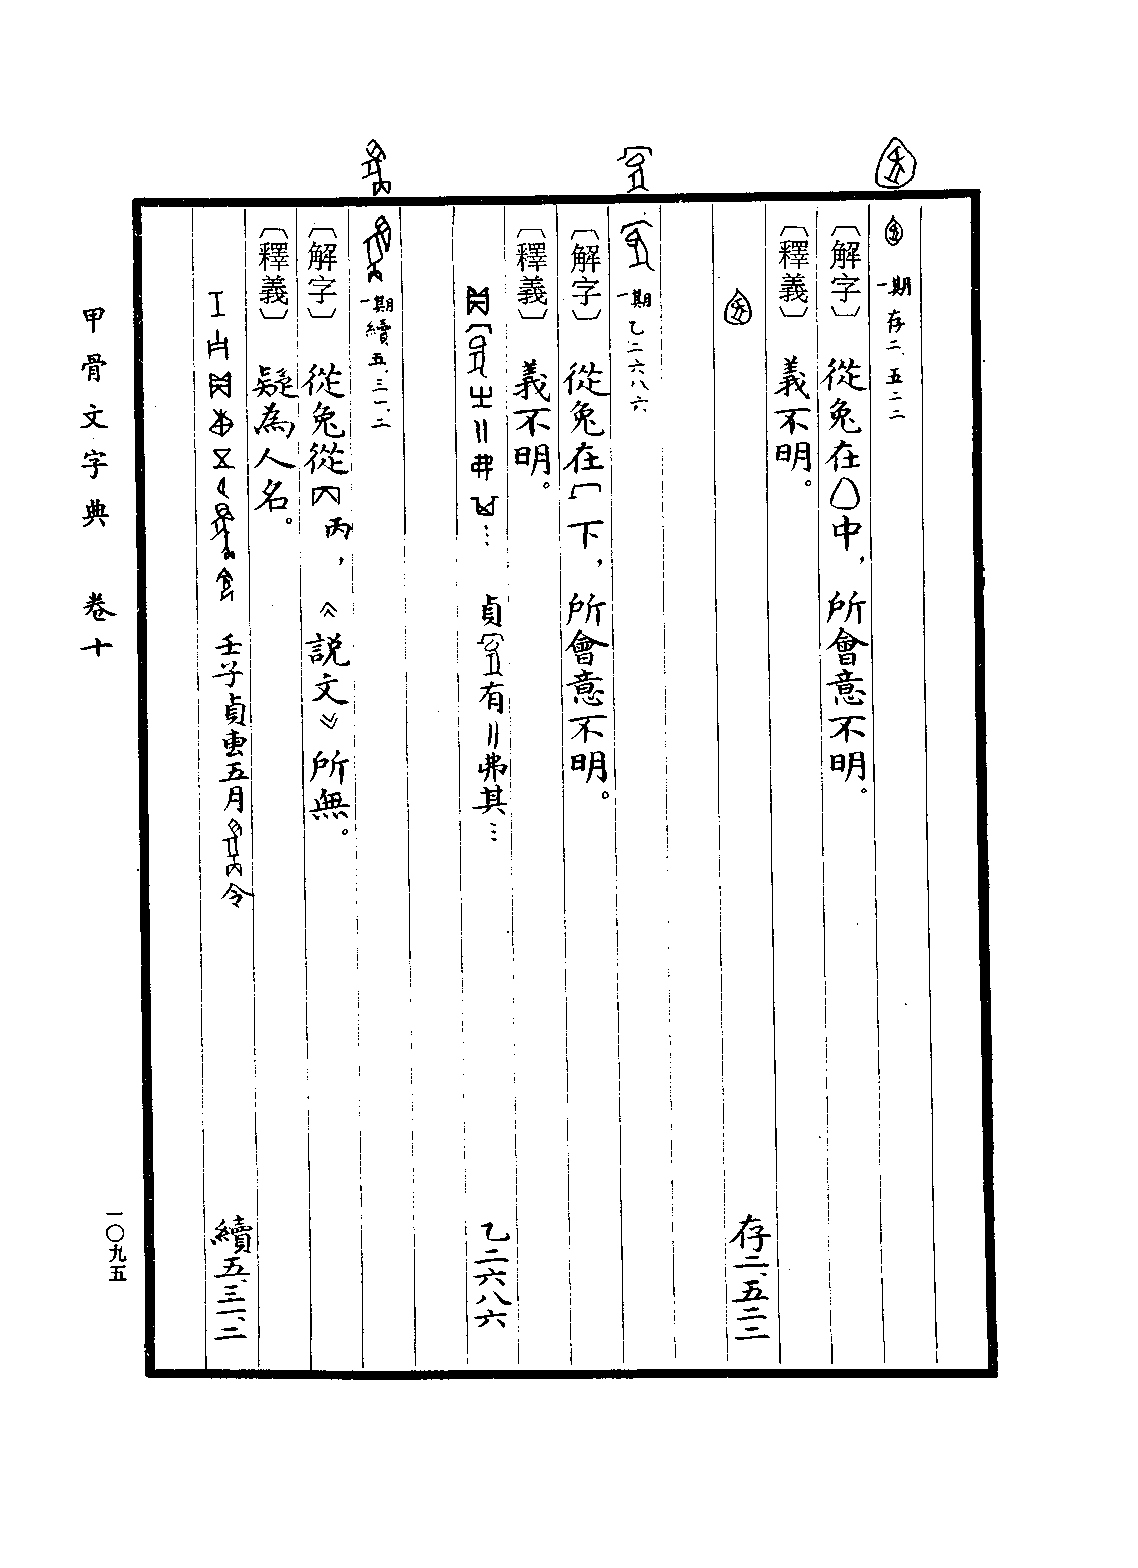 一期 存二、五二二
〔解字〕 從兔在中，所會意不明。
〔釋義〕 義不明。
存二、五二二
一期 乙二六八六
〔解字〕 從兔在下，所會意不明。
〔釋義〕 義不明。
貞有〢弗其… 乙二六八六
一期 續五、三一、二
〔解字〕 從兔從丙，《說文》所無。
〔釋義〕 疑為人名。
壬子貞叀五月令 續五、三一、二
甲骨文字典 卷十
一〇九五